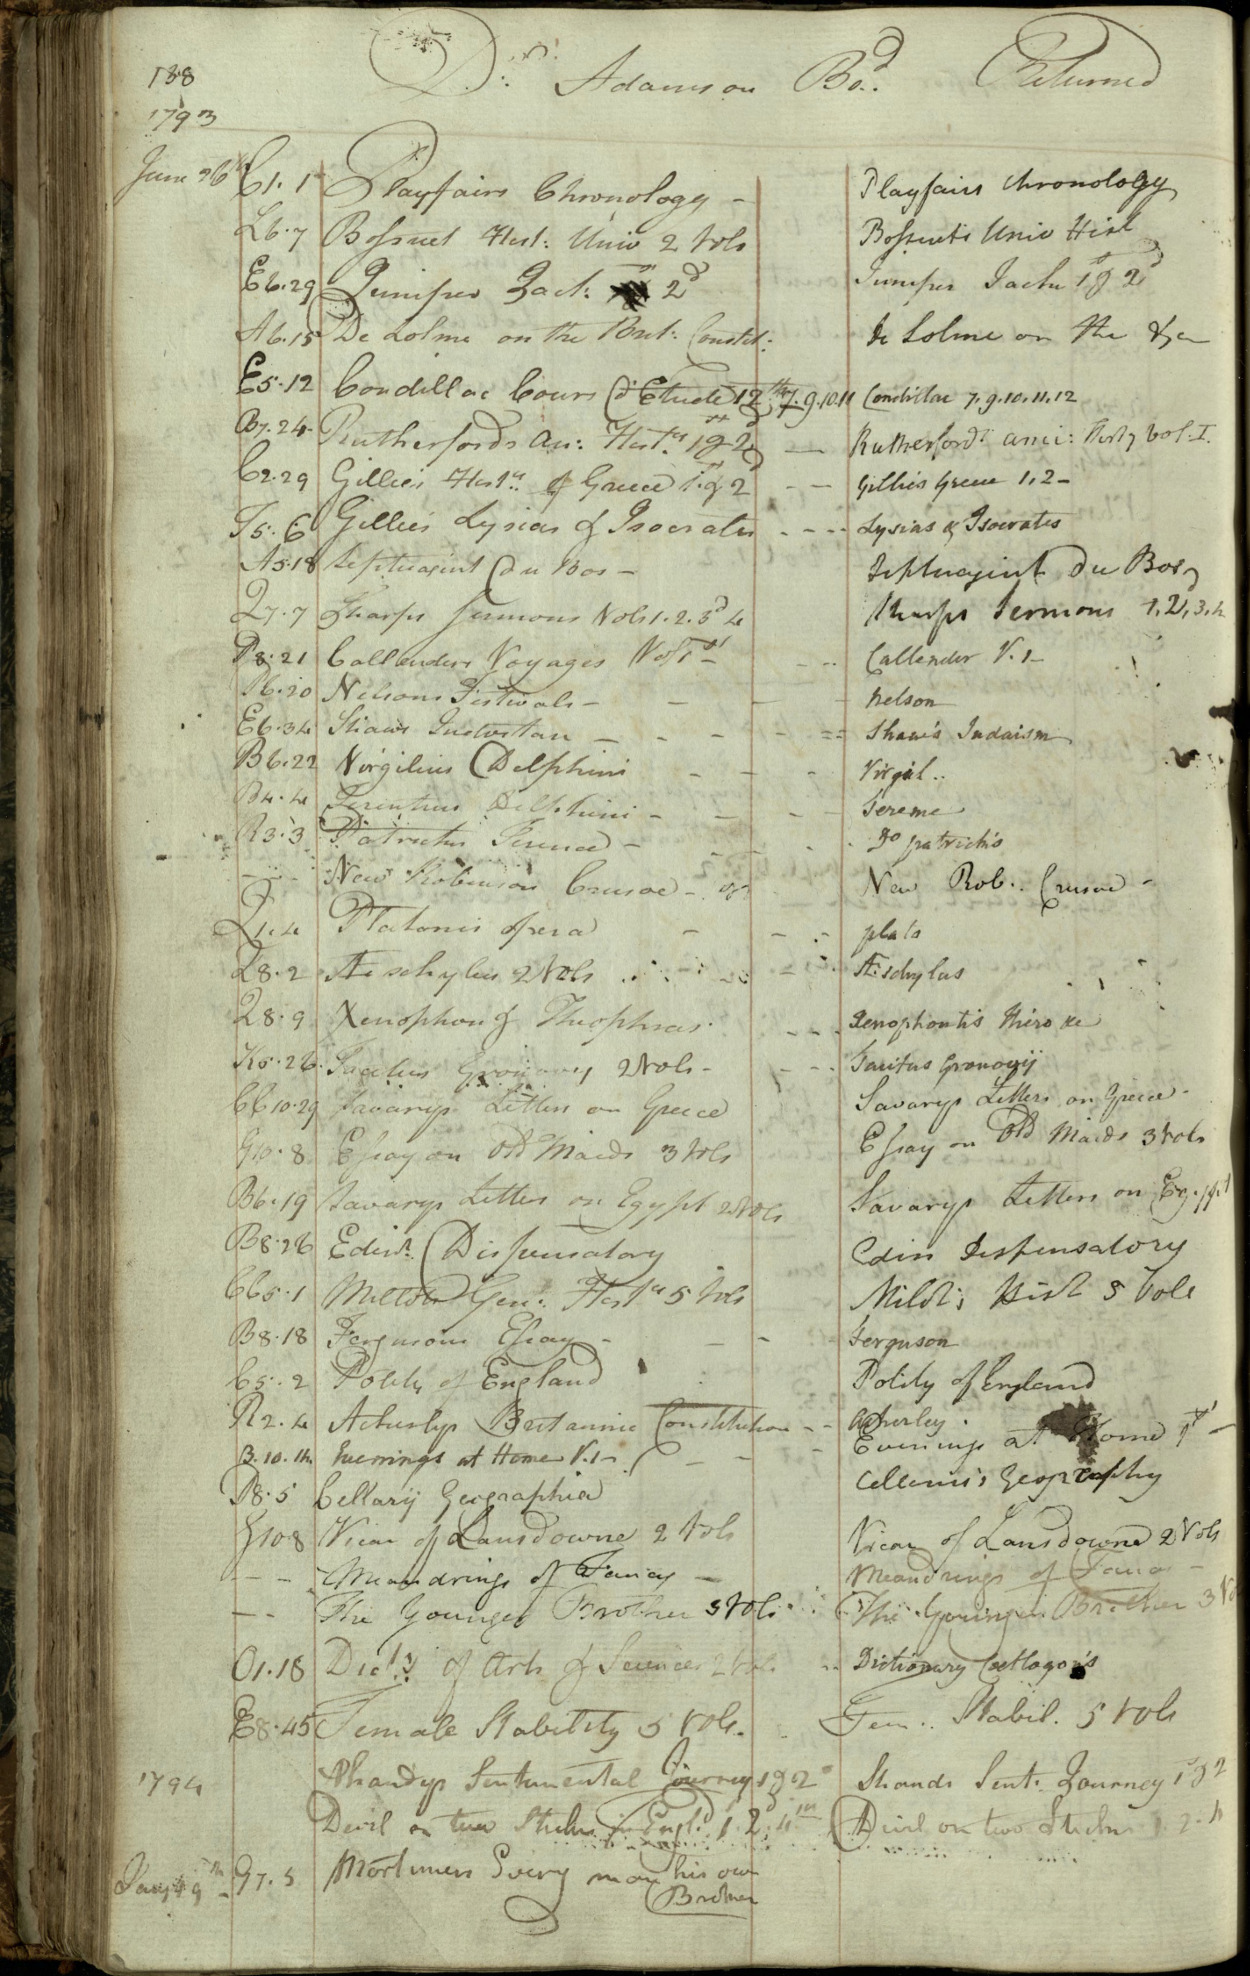 188 Dr. Adamson Bod. Returned
1793
June 26th C1.1 Playfairs Chronology - Playfairs Chronology
L6.7 Bossuet Hist: Univ 2 Vols Bossuets Univ Hist
E6.29 Juniper Jack: 2d Juniper Jacke 1st & 2d
A6.15 De Lolme on the Brit: Constit: De Lolme on the &c
E5.12 Condillac Cours d'Etude 12th 7.9.10.11 Condillac 7.9.10.11.12
B7.24 Rutherfords An: Histy 1st & 2d — Rutherfords anci: Histy Vol. I.
C2.29 Gillies Histy of Greece 1. & 2 - - Gillies Greece 1,2 -
T5.6 Gillies Lysias & Isocrates - - - Lysias & Isocrates
A5.18 Septuagint du Bos - Septuagint Du Bos
Q7.7 Sharps Sermons Vols 1.2.3d 4 Sharps Sermons 1,2,3,4
P8.21 Callenders Voyages Vol 1st - - Callender V.1 -
P6.20 Nelsons Festivals - - - Nelson
E6.34 Shaws - - - - Shaw's Judaism
B6.22 Virgilius Delphini - - - Virgil..
B4.4 Terentius Delphini - - - - Terence
R3.3 Patricks Terence - - - - Do patrick's
- - - New Robinson Crusoe - New Rob.. Crusoe -
Q1.4 Platonis opera - - - plato
Q8.2 Aeschylus 2 Vols Æschylus
Q8.9 Xenophon & Theophras: - - - Xenophontis Hiero &c
K5.26 Tacitus Gronovy 2 Vols - - - - Tacitus Gronovij
CC10.29 Savarys Letters on Greece Savarys Letters on Greece -
G10.8 Essay on Old Maids 3 Vols Essay on Old Maids 3 Vols
B6.19 Savarys Letters on Egypt 2 Vols Savarys Letters on Egypt
B8.26 Edinr. Dispensatory Edin Dispensatory
CC5.1 Millots Gen: Histy 5 Vols Millot's Hist 5 Vols
B8.18 Fergusons Essay - - - Ferguson
C5.2 Polity of England Polity of England
R2.4 Acherleys Britannic Constitution - - Acherley.
B.10.14 Evenings at Home V.1 - - - Evenings at Home 1st -
P8.5 Cellarij Geographia Cellarius Geography
G10.8 Vicar of Lansdowne 2 Vols Vicar of Lansdowne 2 Vols
- - Meandrings of Fancy - Meandrings of Fancy -
- - The Younger Brother 3 Vols The Younger Brother 3 Vo
O1.18 Dicty of Arts & Sciences 2 Vols - - Dictionary Coetlogon's
E8.45 Female Stability 5 Vols. Fem.. Stabil. 5 Vols
1794 Shandys Sentimental Journey 1 & 2 Shandi Sent: Journey 1 & 2
Devil on two Sticks in Engld. 1.2d.4th Devil on two Sticks 1.2.4
Jany 9th G7.5 Mortimers Every man his own
Broker